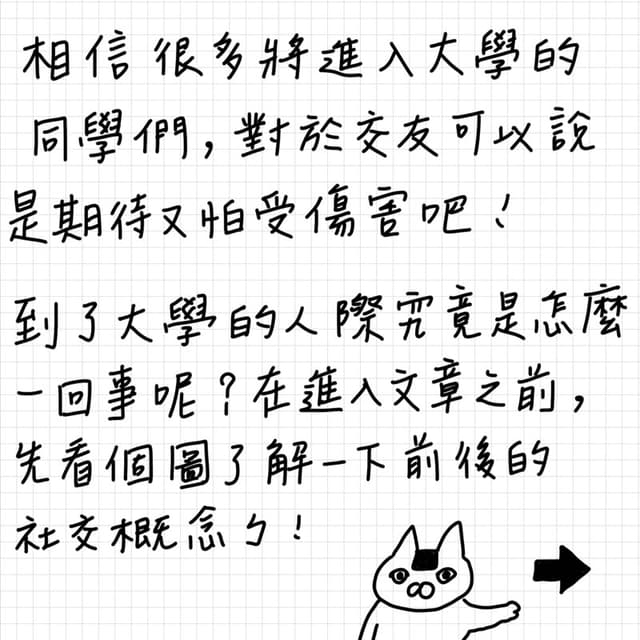 相信很多將進入大學的
同學們,對於交友可以說
是期待又怕受傷害吧!
到了大學的人際究竟是怎麼
一回事呢?在進入文章之前,
先看個圖了解一下前後的
社交概念ㄅ!